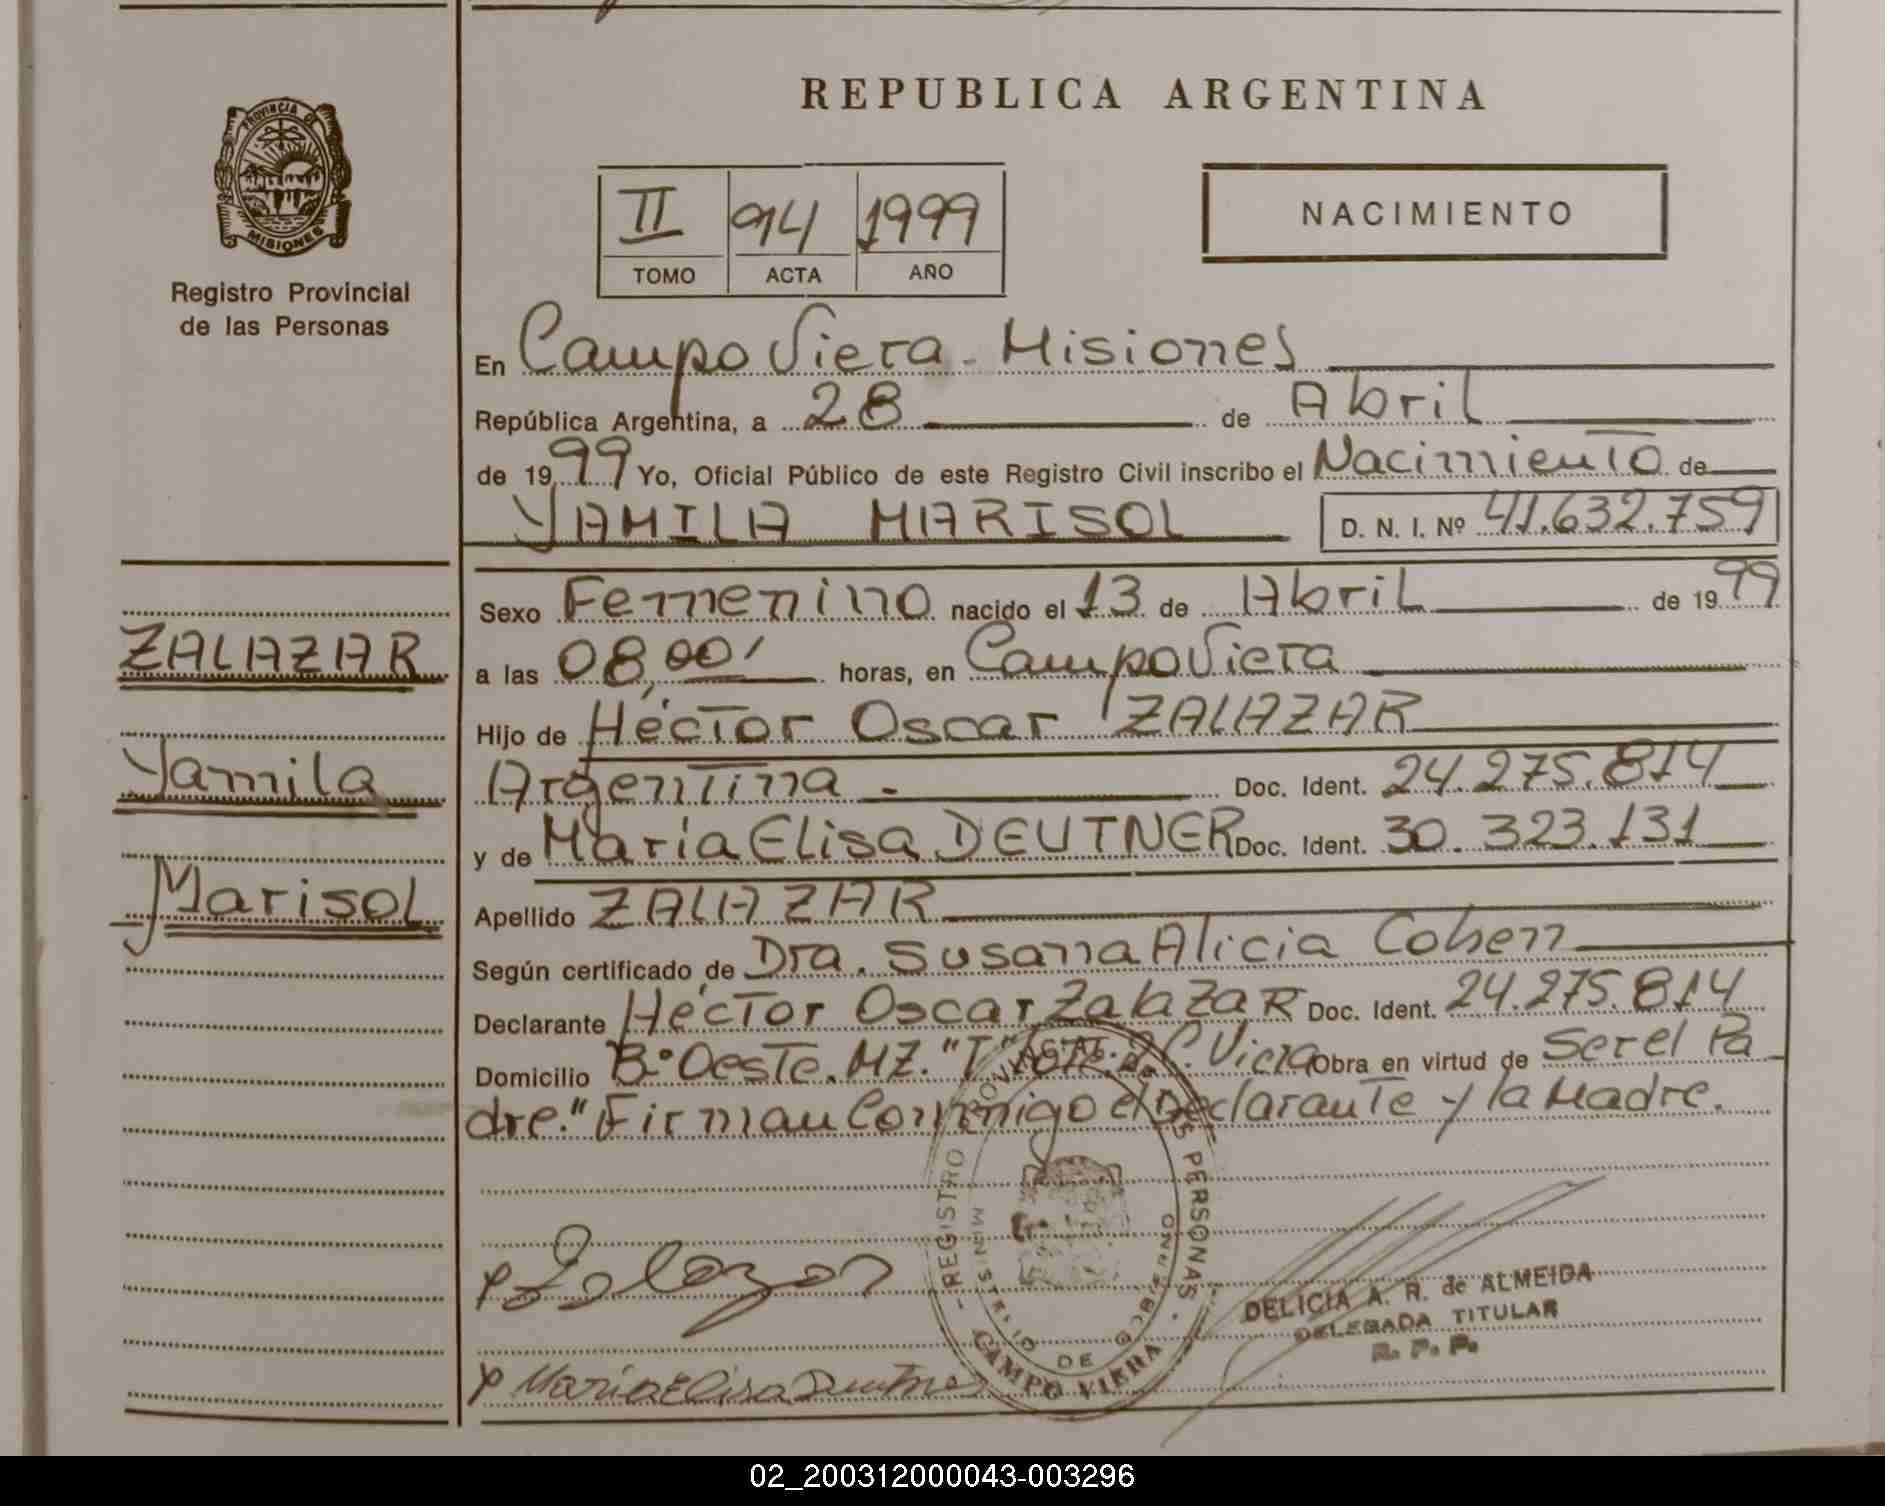 REPUBLICA ARGENTINA
PROVINCIA DE
MISIONES
Registro Provincial
de las Personas
II 94 1999
TOMO ACTA AÑO
NACIMIENTO
En Campo Viera - Misiones
República Argentina, a 28 de Abril
de 1999 Yo, Oficial Público de este Registro Civil inscribo el Nacimiento de
YAMILA MARISOL D. N. I. Nº 41.632.759
Sexo Femenino nacido el 13 de Abril de 1999
a las 08,00' horas, en Campo Viera
Hijo de Héctor Oscar ZALAZAR
Argentina - Doc. Ident. 24.275.814
y de María Elisa DEUTNER Doc. Ident. 30.323.131
Apellido ZALAZAR
Según certificado de Dra. Susana Alicia Cohen
Declarante Héctor Oscar ZalaZaR Doc. Ident. 24.275.814
Domicilio B.º Oeste. MZ. "I" C. Viera Obra en virtud de Ser el Pa
dre." Firman Conmigo el Declarante y la Madre.
ZALAZAR
Yamila
Marisol
Zalazar
María Elisa Deutner
- REGISTRO PROVINCIAL DE LAS PERSONAS -
MINISTERIO DE GOBIERNO
CAMPO VIERA
DELICIA A. R. de ALMEIDA
DELEGADA TITULAR
R. P. P.
02_200312000043-003296